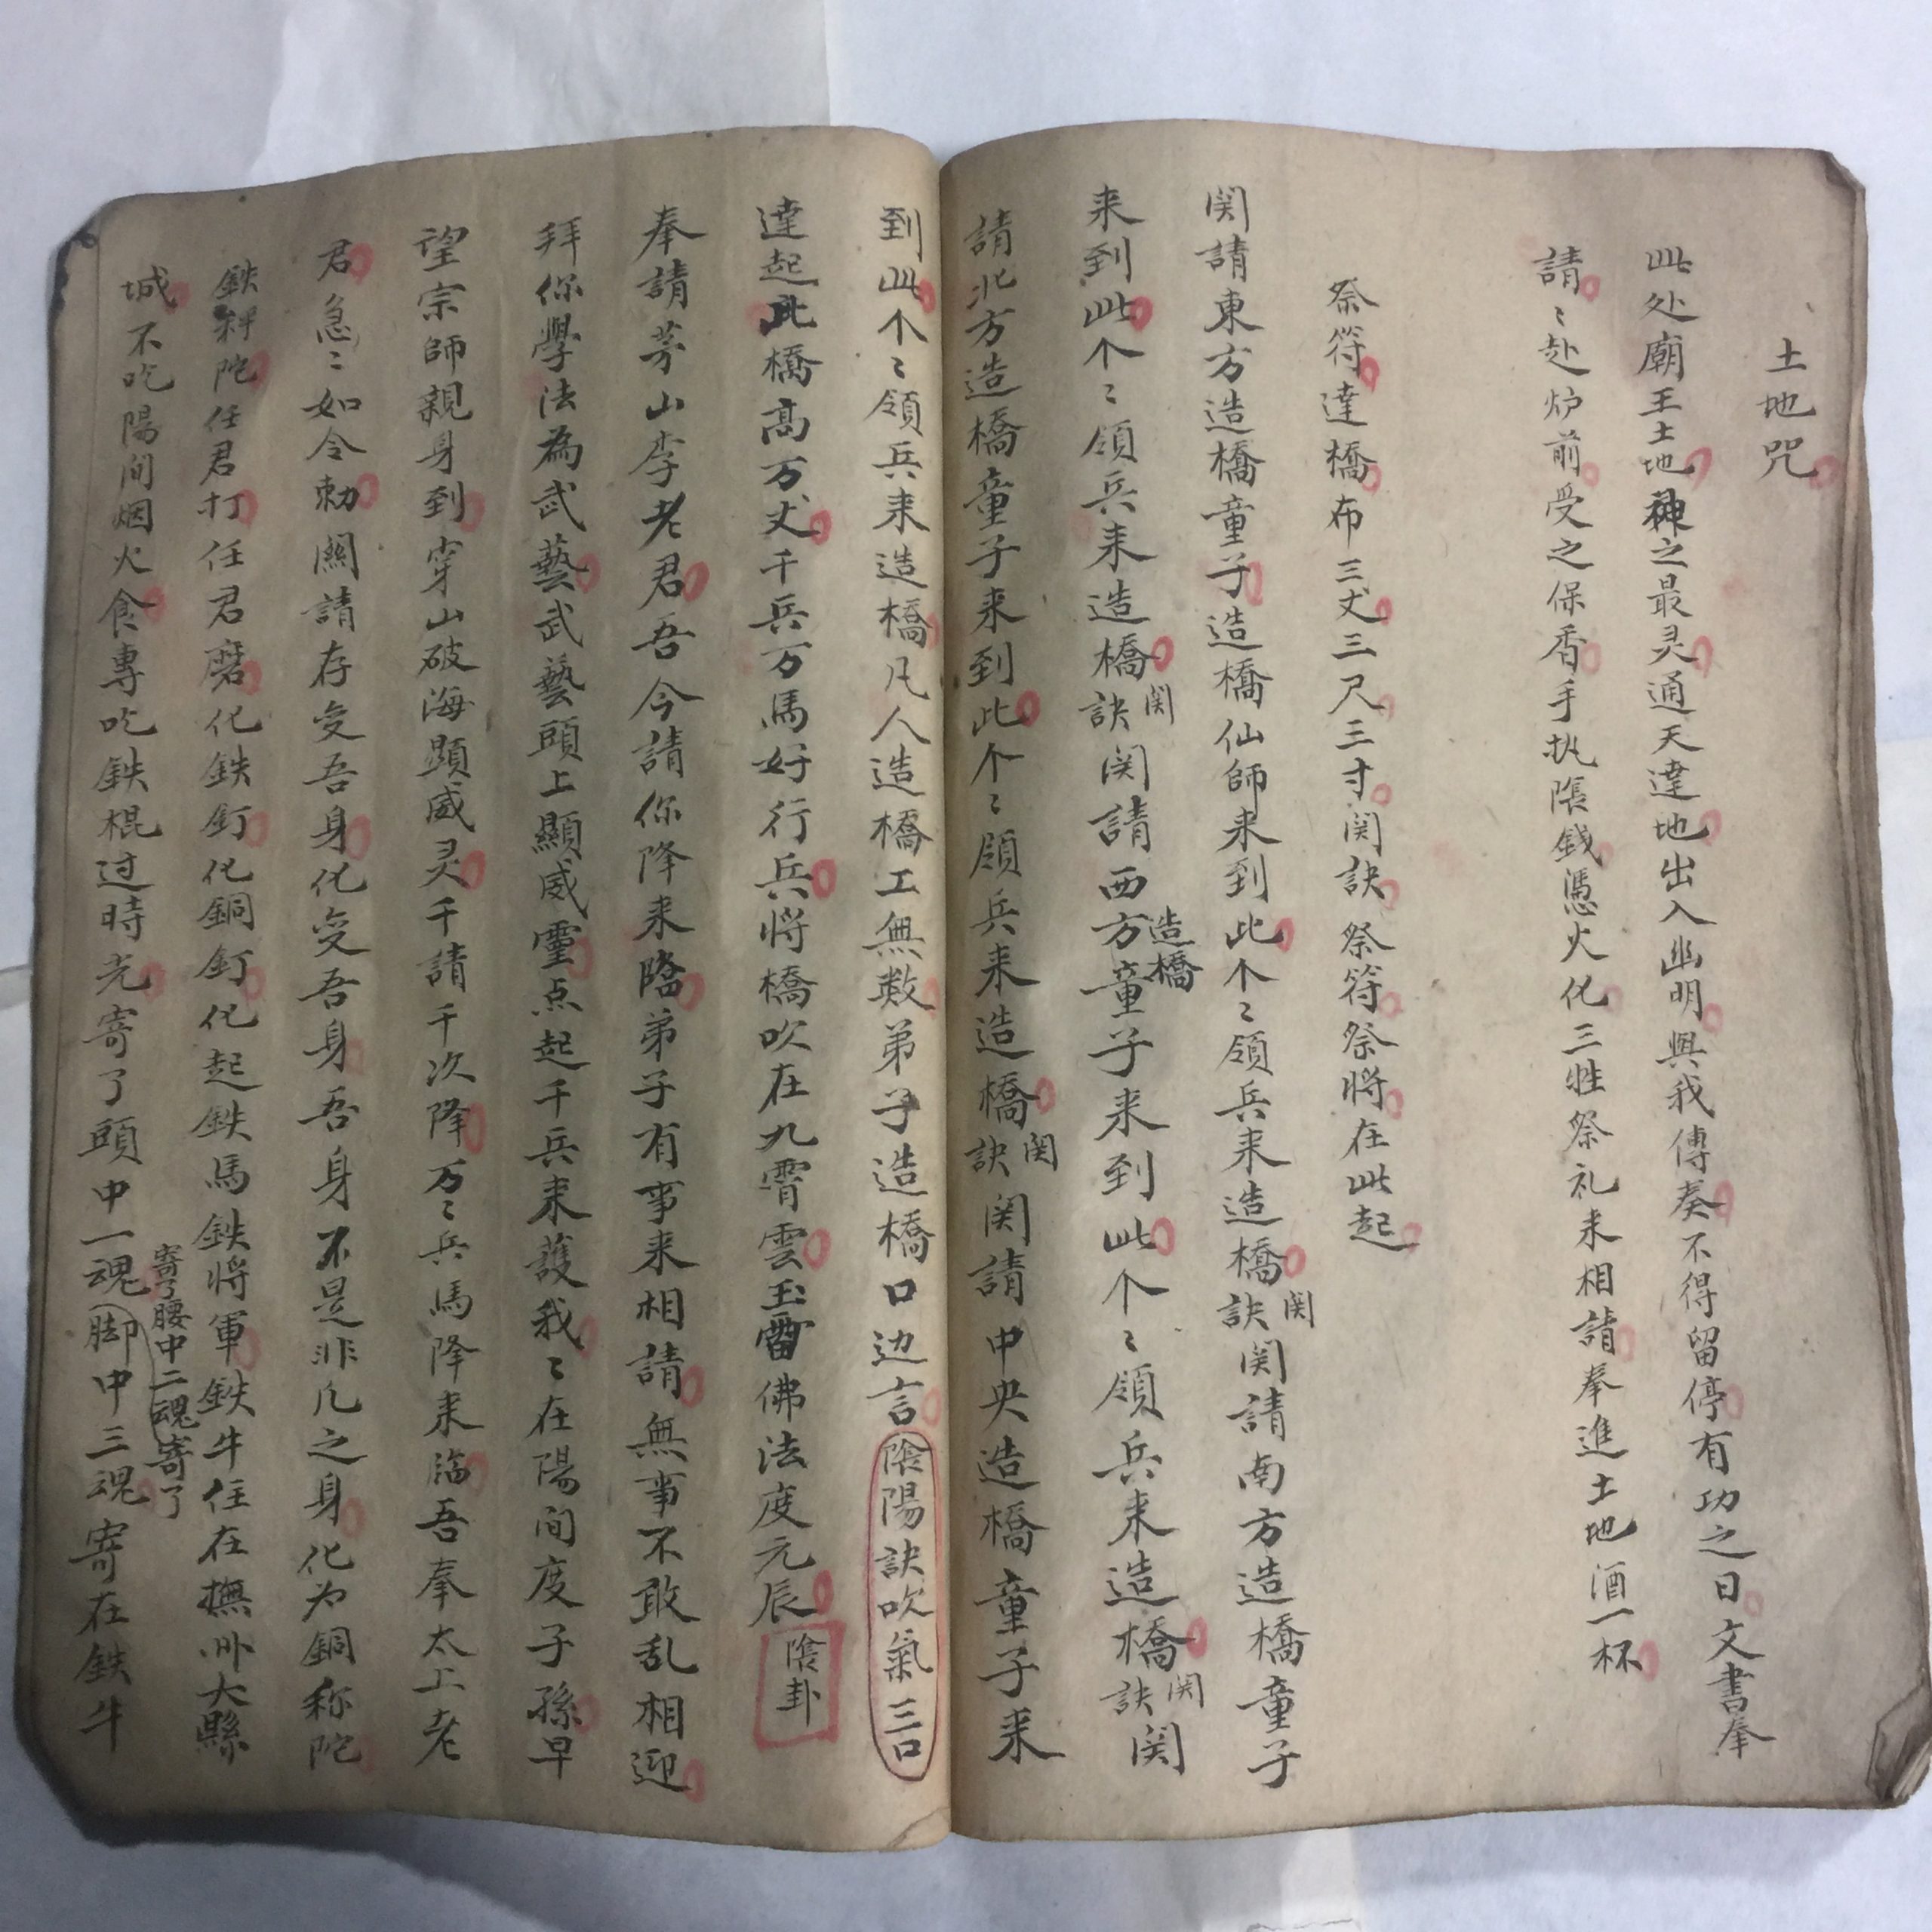 土地咒
此处廟王土地神之最灵通天達地出入幽明與我傳奏不得留停有功之日文書奉
請〻赴炉前受之保香手执陰錢憑火化三牲祭礼来相請奉進土地酒一杯
祭符達橋布三丈三尺三寸関訣祭符祭將在此起
関請東方造橋童子造橋仙師来到此个〻領兵来造橋関訣関請南方造橋童子
来到此个〻領兵来造橋関訣関請西方造橋童子来到此个〻領兵来造橋関訣関
請北方造橋童子来到此个〻領兵来造橋関訣関請中央造橋童子来
到此个〻領兵来造橋凡人造橋工無数弟子造橋口边言陰陽訣吹氣三口
達起此橋高万丈千兵万馬好行兵將橋吹在九霄雲玉雷佛法度元辰陰卦
奉請茅山李老君吾今請你降来臨弟子有事来相請無事不敢乱相迎
拜你學法為武藝武藝頭上顯威靈点起千兵来護我〻在陽间度子孫早
望宗師親身到穿山破海顕威灵千請千次降万〻兵馬降来臨吾奉太上老
君急〻如令勅關請存变吾身化变吾身吾身不是非凡之身化为銅称陀
鉄秤陀任君打任君磨化鉄釘化銅釘化起鉄馬鉄將軍鉄牛住在撫州大縣
城不吃陽间烟火食專吃鉄棍过時光寄了頭中一魂寄了腰中二魂寄了脚中三魂寄在鉄牛